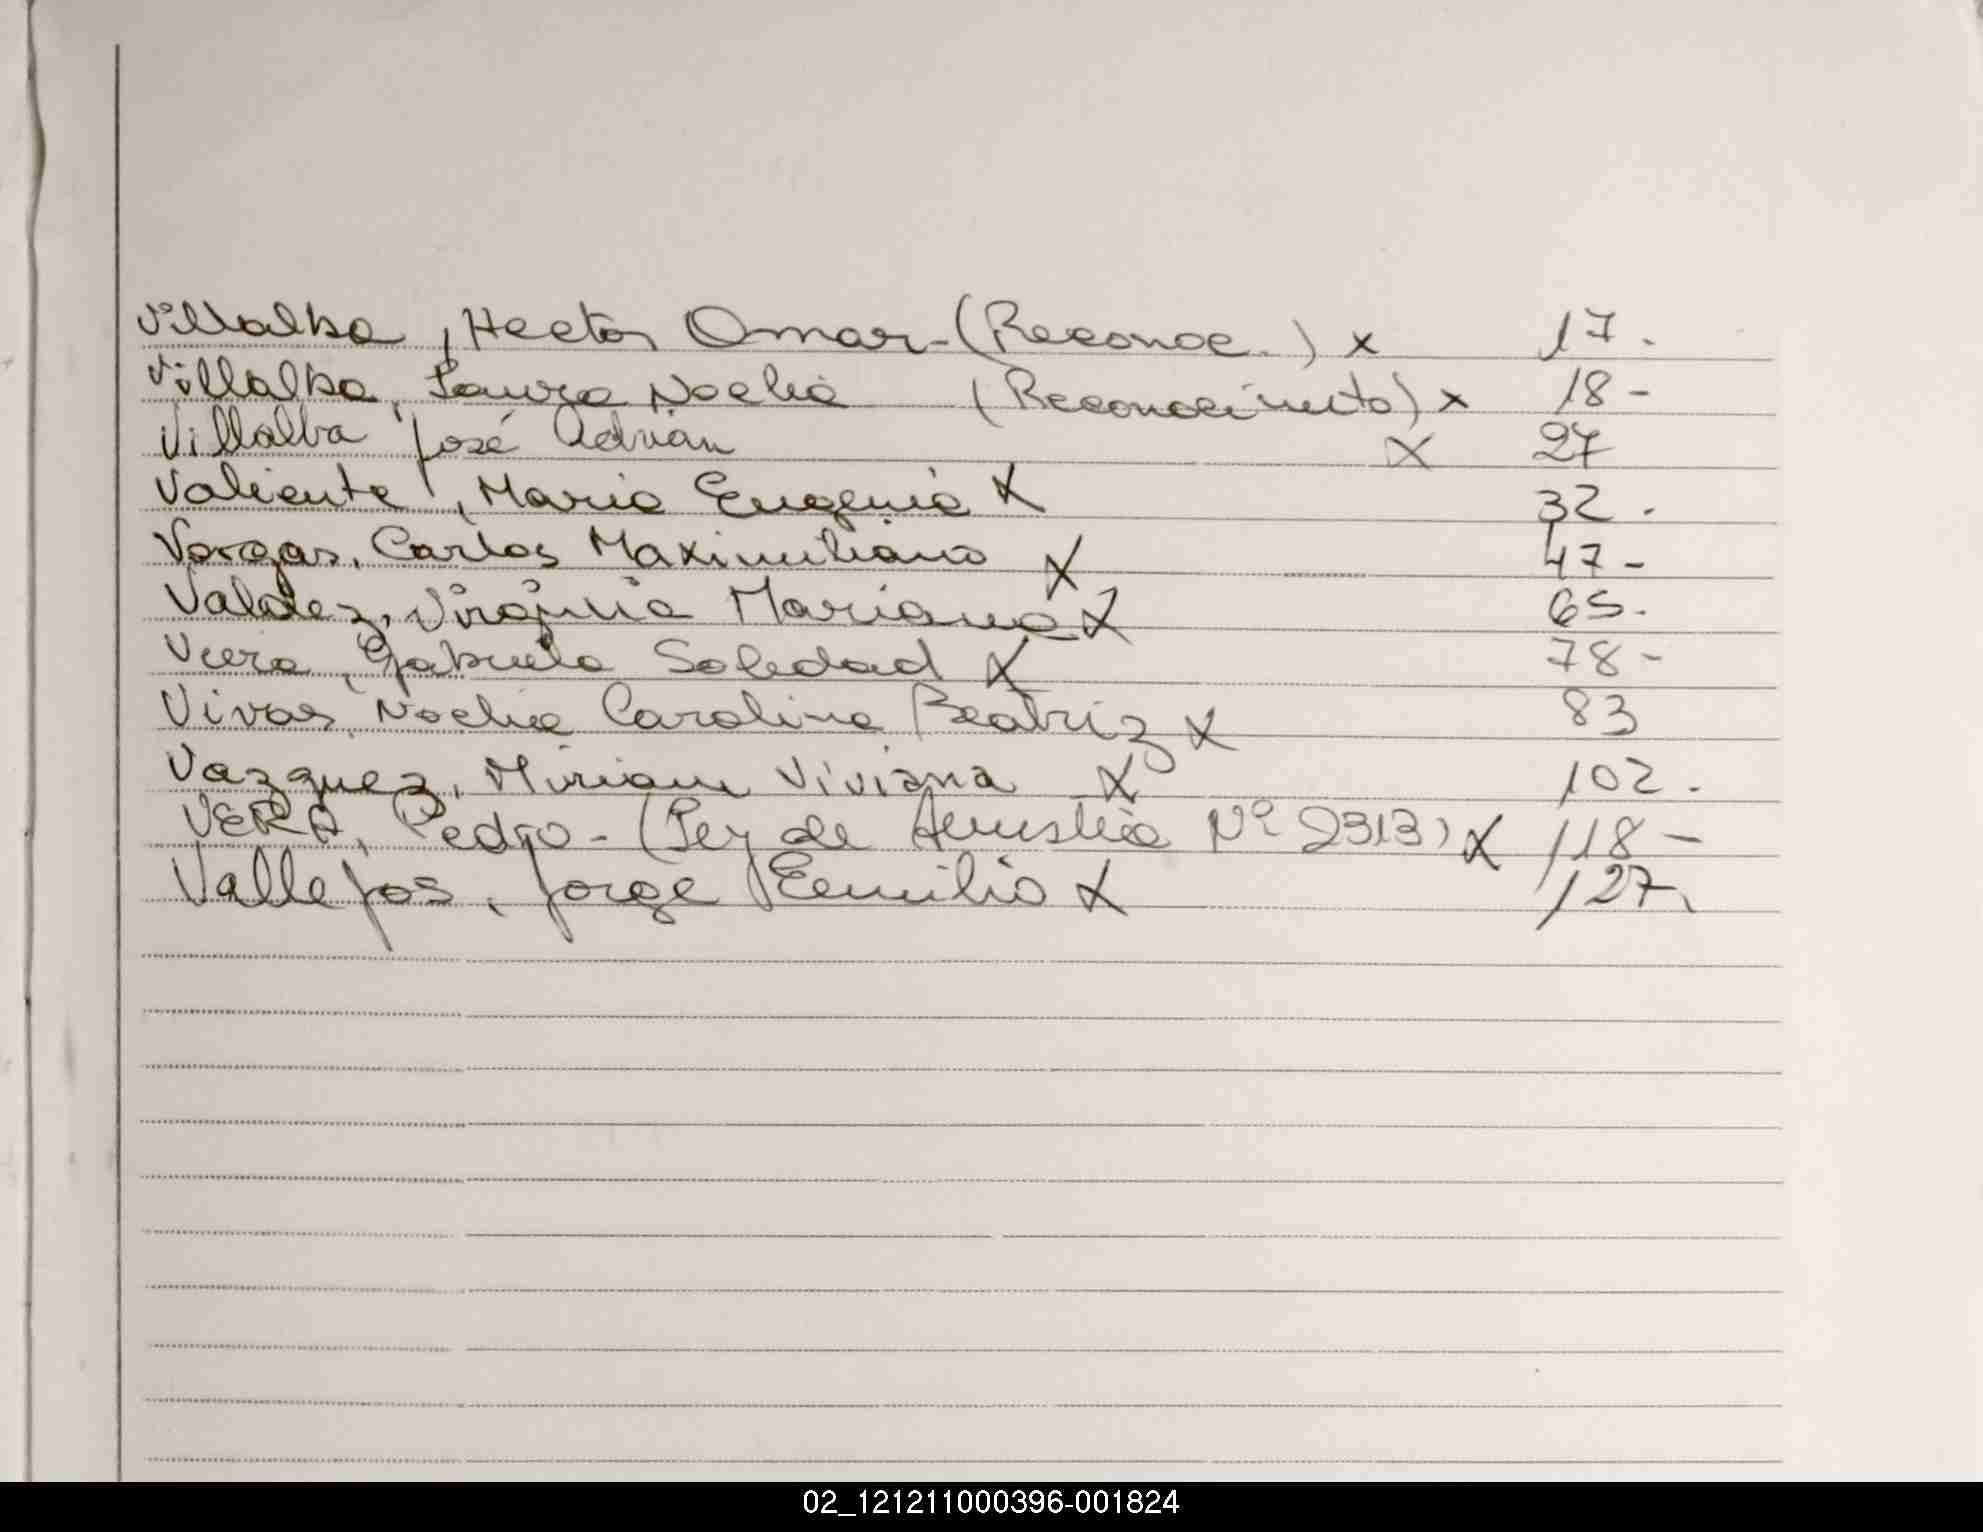 Villalba, Hector Omar - (Reconoc.) x 17.
Villalba, Laura Noelia (Reconocimiento) x 18 -
Villalba José Adrián x 27
Valiente, Maria Eugenia x 32.
Vargas, Carlos Maximiliano x 47 -
Valdez, Virginia Mariana x 65.
Viera, Gabriela Soledad x 78 -
Vivas, Noelia Carolina Beatriz x 83
Vazquez, Miriam Viviana x 102.
VERA, Pedro - (Ley de Amnistia Nº 2313) x 118 -
Vallejos, Jorge Eemilio x 127,
02_121211000396-001824